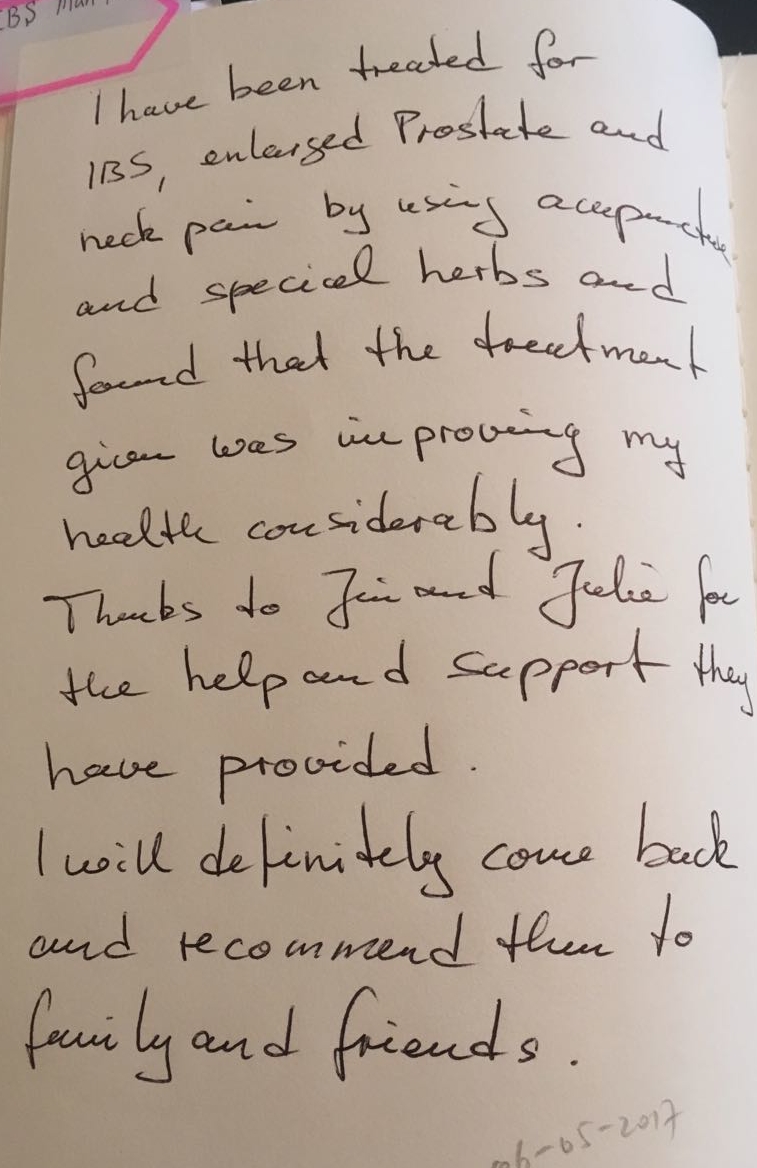 IBS
I have been treated for
IBS, enlarged Prostate and
neck pain by using acupuncture
and special herbs and
found that the treatment
given was improving my
health considerably.
Thanks to Jin and Julie for
the help and support they
have provided.
I will definitely come back
and recommend them to
family and friends.
06-05-2017